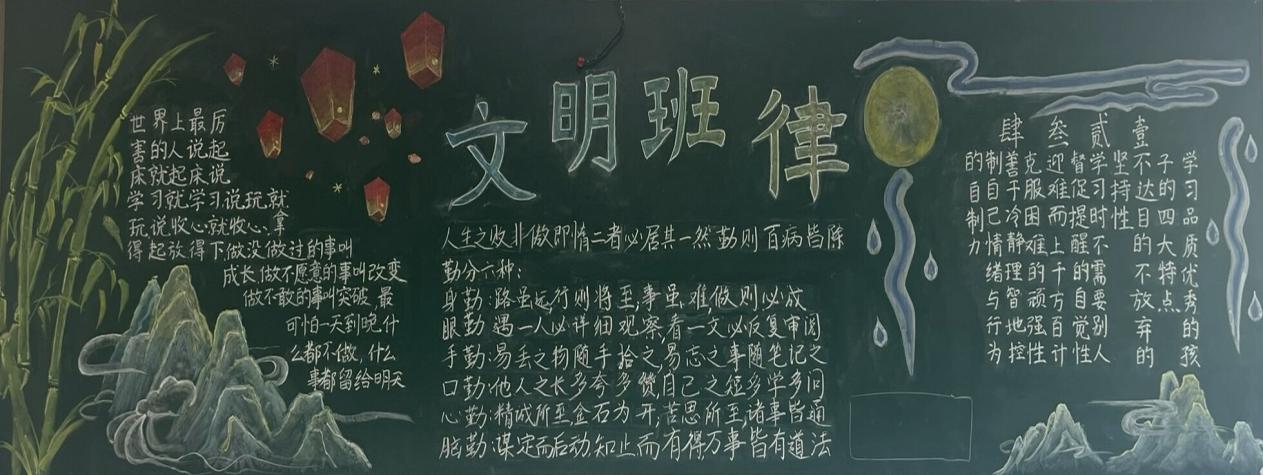 文明班律
世界上最厉
害的人说起
床就起床说
学习就学习说玩就
玩说收心就收心、拿
得起放得下做没做过的事叫
成长做不愿意的事叫改变
做不敢的事叫突破 最
可怕一天到晚什
么都不做,什么
事都留给明天
人生之收非做即惰二者必居其一然勤则百病皆除
勤分六种:
身勤:路虽远,行则将至,事虽难,做则必成
眼勤:遇一人必详细观察,看一文必反复审阅
手勤:易去之物随手拾之,易忘之事随笔记之
口勤:他人之长多夸多赞,自己之短多学多问
心勤:精诚所至金石为开,苦思所至,诸事皆通
脑勤:谋定而后动,知止而有得,万事皆有道法
学习品质优秀的孩
子的四大特点
壹不达目的不放弃的
坚持性
贰学习时不需要别人
督促提醒的自觉性
叁迎难而上千方百计
克服困难的顽强性
肆善于冷静理智地控
制自己情绪与行为
的自制力